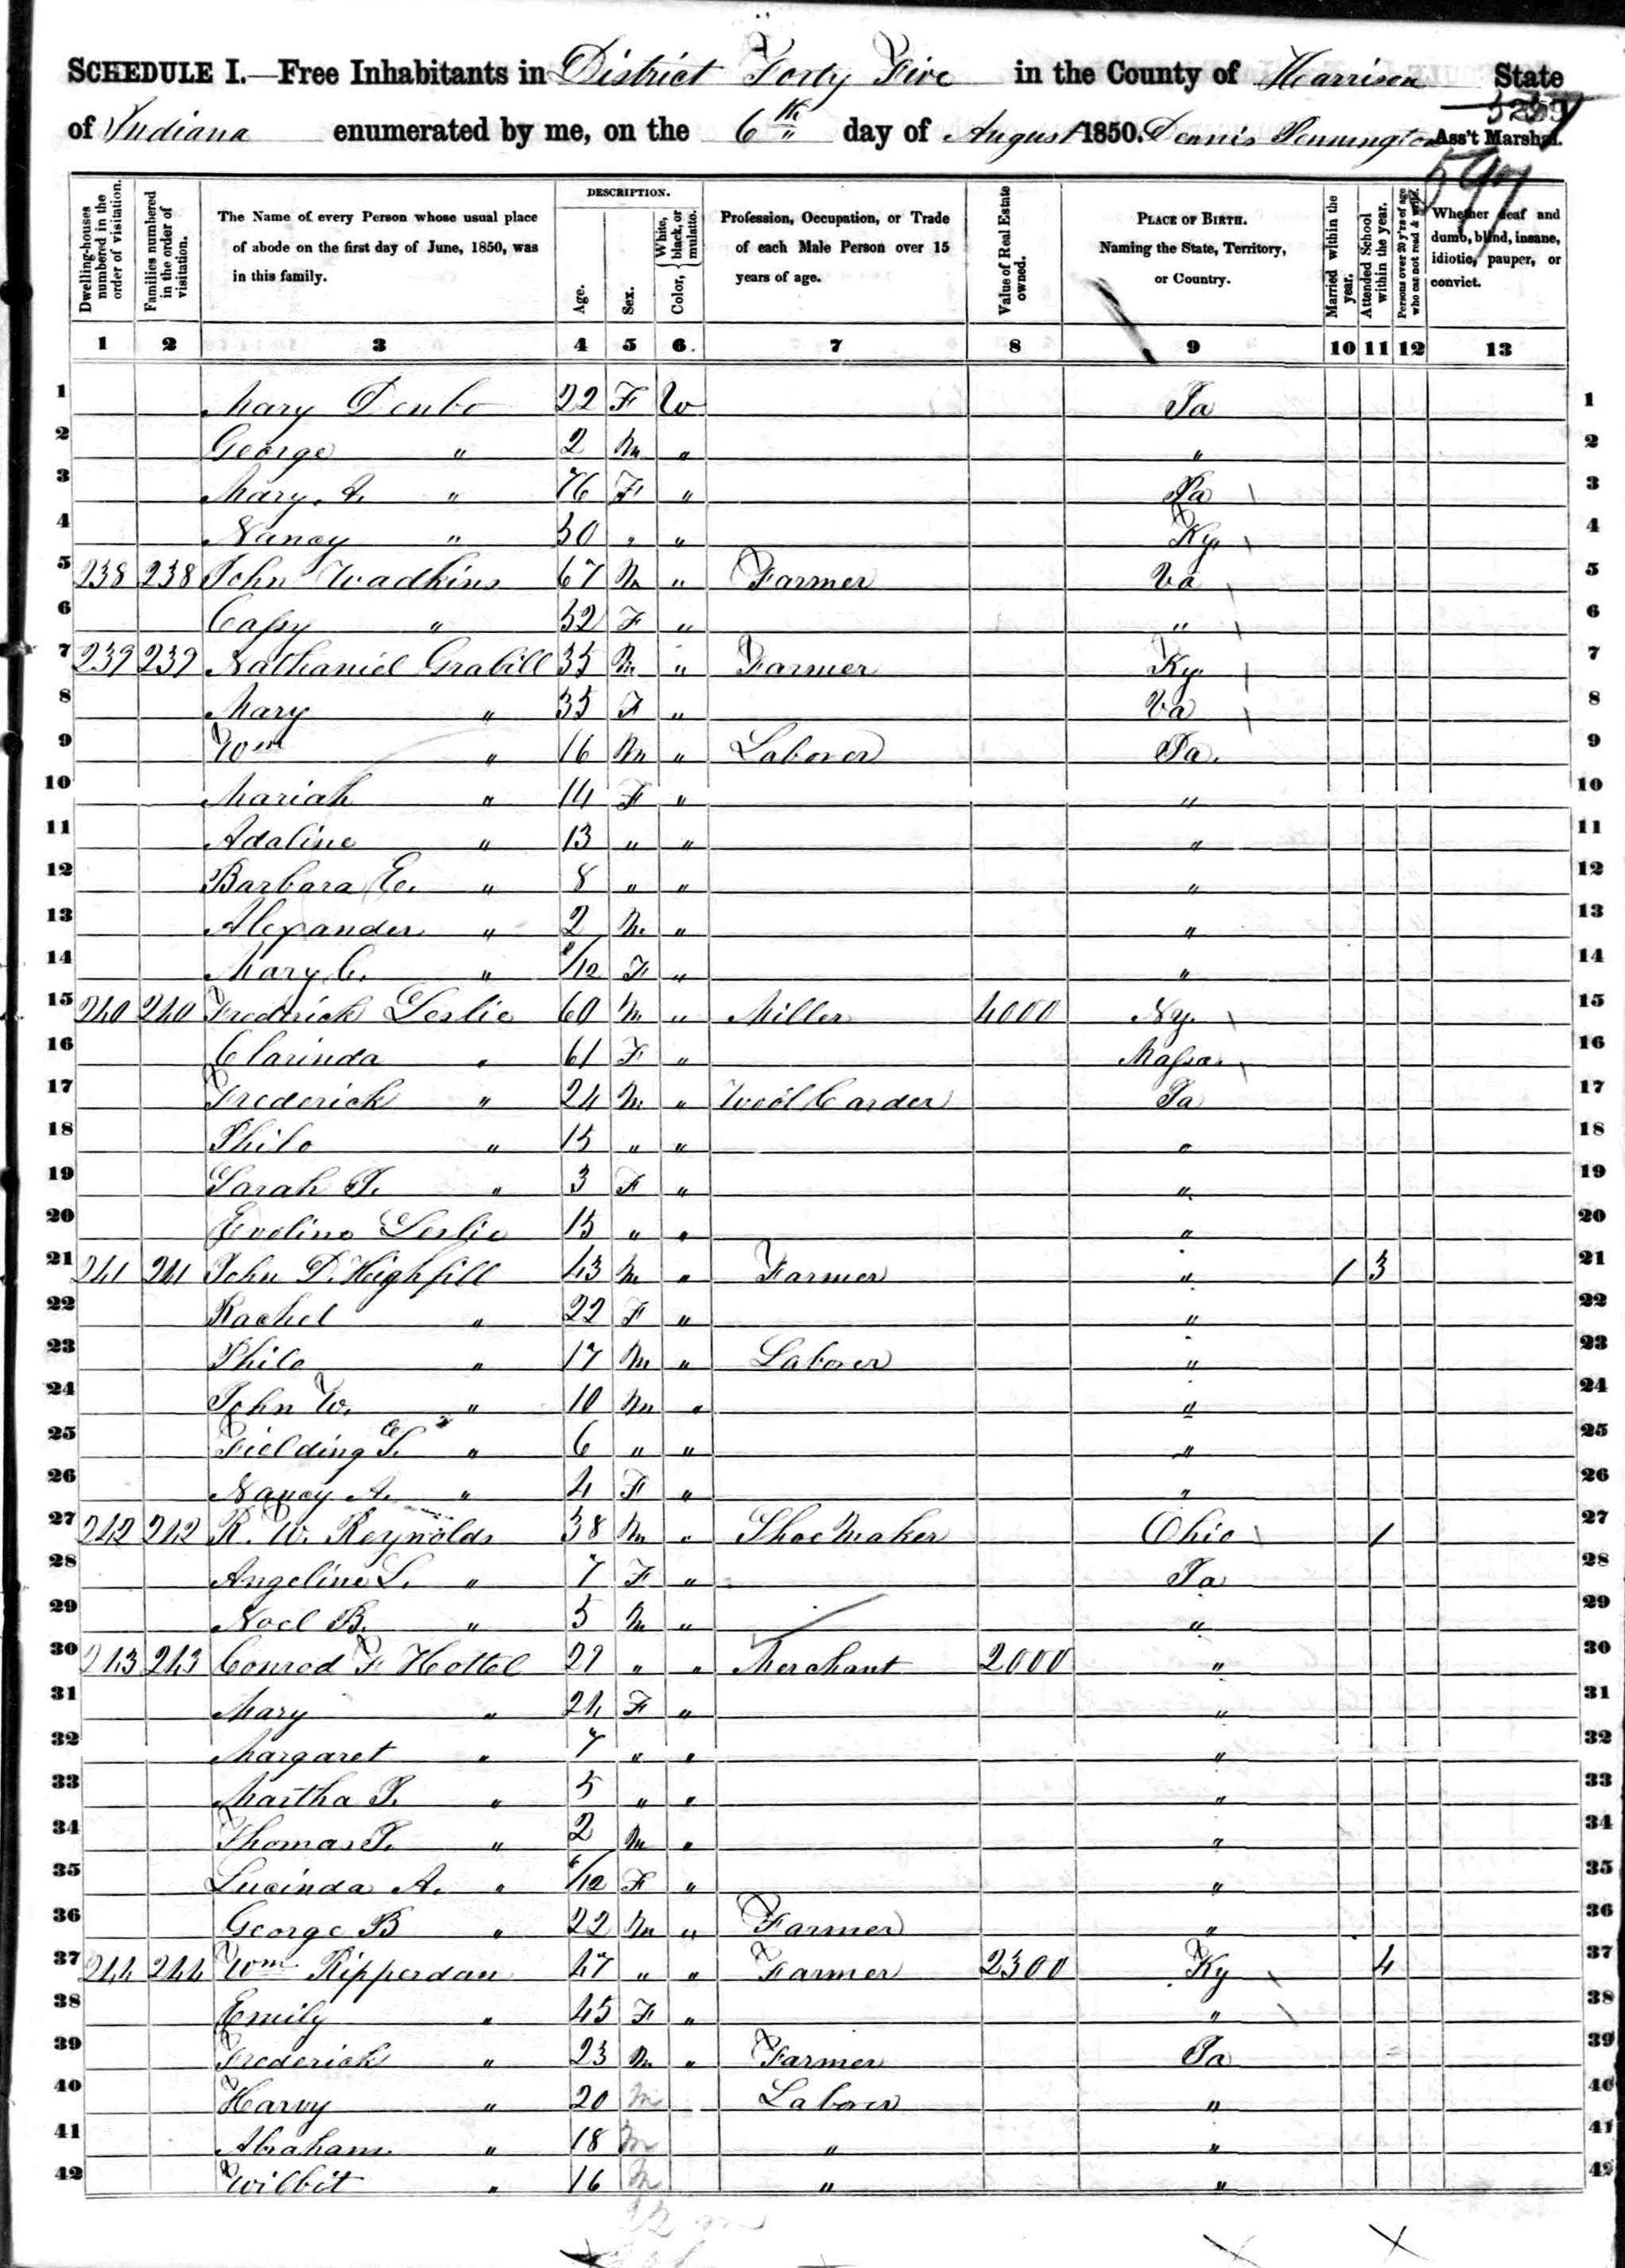 SCHEDULE I.—Free Inhabitants in District Forty Five in the County of Harrison State
of Indiana enumerated by me, on the 6th day of August 1850. Dennis Pennington Ass't Marshal.
597
DESCRIPTION.
Dwelling-houses numbered in the order of visitation. Families numbered in the order of visitation. The Name of every Person whose usual place of abode on the first day of June, 1850, was in this family. Age. Sex. Color, { White, black, or mulatto. Profession, Occupation, or Trade of each Male Person over 15 years of age. Value of Real Estate owned. PLACE OF BIRTH. Naming the State, Territory, or Country. Married within the year. Attended School within the year. Persons over 20 y'rs of age who can not read & write. Whether deaf and dumb, blind, insane, idiotic, pauper, or convict.
1 2 3 4 5 6 7 8 9 10 11 12 13
1 Mary Denbo 22 F W Ia 1
2 George " 2 M " " 2
3 Mary A. " 76 F " Pa 3
4 Nancy " 30 " " Ky. 4
5 238 238 John Wadkins 67 M " Farmer Va 5
6 Cassy " 52 F " " 6
7 239 239 Nathaniel Grabill 35 M " Farmer Ky. 7
8 Mary " 35 F " Va 8
9 Wm " 16 M " Laborer Ia. 9
10 Mariah " 14 F " " 10
11 Adaline " 13 " " " 11
12 Barbara E. " 8 " " " 12
13 Alexander " 2 M " " 13
14 Mary C. " /12 F " " 14
15 240 240 Frederick Leslie 60 M " Miller 4000 Ny. 15
16 Clarinda " 61 F " Massa. 16
17 Frederick " 24 M " Wool Carder Ia 17
18 Philo " 15 " " " 18
19 Sarah J. " 3 F " " 19
20 Eveline Leslie 15 " " " 20
21 241 241 John D. Highfill 43 M " Farmer " 1 3 21
22 Rachel " 22 F " " 22
23 Philo " 17 M " Laborer " 23
24 John W. " 10 M " " 24
25 Fielding " 6 " " " 25
26 Nancy A. " 4 F " " 26
27 242 242 R. W. Reynolds 38 M " Shoe Maker Ohio 1 27
28 Angeline L. " 7 F " Ia 28
29 Noel B. " 5 M " " 29
30 243 243 Conrod F Hottel " " Merchant 2000 " 30
31 Mary " 24 F " " 31
32 Margaret " 7 " " " 32
33 Martha J. " 5 " " " 33
34 Thomas J. " 2 M " " 34
35 Lucinda A. " /12 F " " 35
36 George B " 22 M " Farmer " 36
37 244 244 Wm Ripperdan 47 " " Farmer 2300 Ky 4 37
38 Emily " 45 F " " 38
39 Frederick " 23 M " Farmer Ia 39
40 Harvy " 20 M Laborer " 40
41 Abraham " 18 M " " 41
42 Wilbit " 16 M " " 42